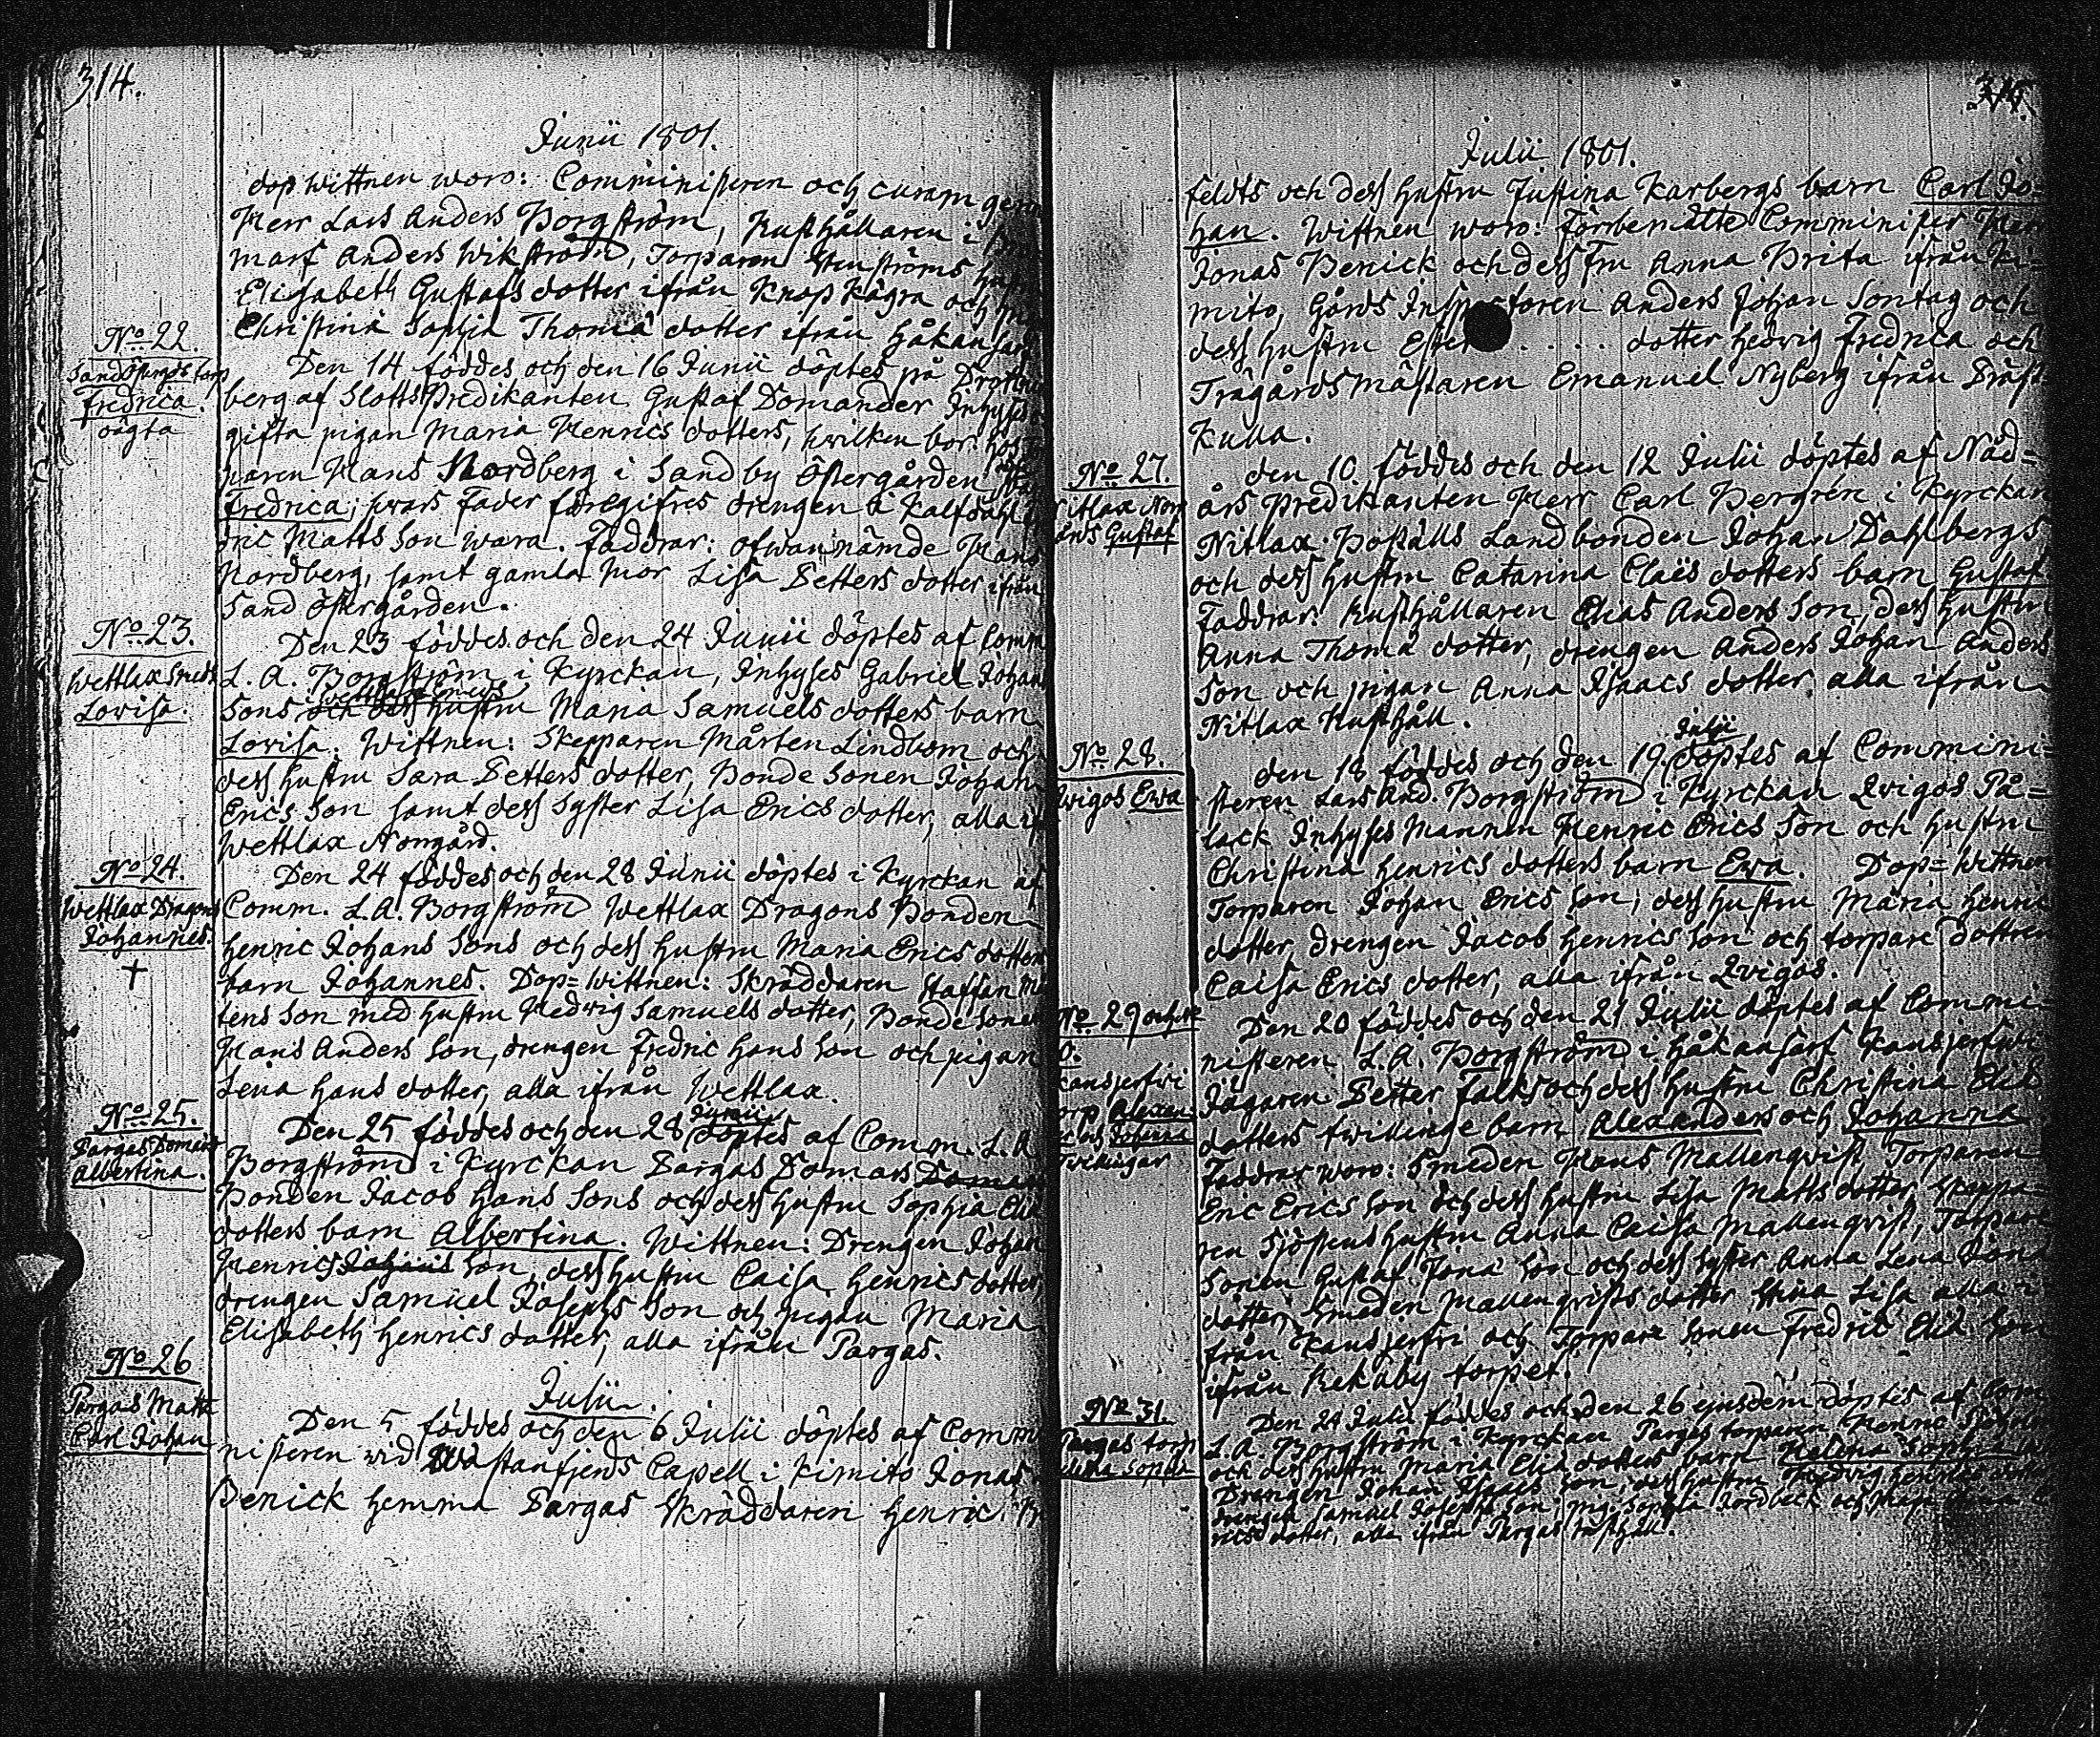 314.
Junii 1801.
dop wittnen woro: Comministeren och curam
Herr Lars Anders Borgström, Rusthållaren i
marf Anders Wikström, Torparen Stenströms
Elisabeth Gustafs dotter ifrån Knopkägra och
Christina Sophia Thomæ dotter ifrån Håkansarf
No 22.
Sand Östergårds torp
Fredrica.
oägta
Den 14 föddes och den 16 Junii döptes på
berg af Slotts Predikanten Gustaf Domander Inhyses
gifta pigan Maria Henrics dotters, hwilken bor hos
paren Hans Nordberg i Sand by Östergården
Fredrica; hvars Fader föregifves drengen i Kalfdahl
dric Matts Son wara. Faddrar: ofwannämde Hans
Nordberg, samt gamla mor Lisa Petters dotter ifrån
Sand Östergården.
No 23.
Wettlax Smeds
Lovisa.
Den 23 föddes och den 24 Junii döptes af Comm
L. A. Borgström i Kyrckan, Inhyses Gabriel Johans
Wettlax Smeds
Sons och dess hustru Maria Samuels dotters barn
Lovisa. Wittnen: Skepparen Mårten Lindbom och
dess hustru Sara Petters dotter, Bonde Sonen Johan
Erics Son samt dess Syster Lisa Erics dotter, alla
Wettlax Norrgård.
No 24.
Wettlax Dragons
Johannes.
†
Den 24 föddes och den 28 Junii döptes i Kyrckan af
Comm. L. A. Borgström Wettlax Dragons Bonden
Henric Johans Sons och dess hustru Maria Erics dotters
barn Johannes. Dop=Wittnen: Skräddaren Staffan
tens Son med hustru Hedwig Samuels dotter, Bonde sonen
Hans Anders Son, drengen Fredric Hans Son och pigan
Lena Hans dotter, alla ifrån Wettlax.
No 25.
Pargas Domars
Albertina.
Junii
Den 25 föddes och den 28 döptes af Comm. L. A
Borgström i Kyrckan Pargas Domars
Bonden Jacob Hans Sons och dess hustru Sophia Eliæ
dotters barn Albertina. Wittnen: Drengen Johan
Henrics Johans Son, dess hustru Caisa Henrics dotter,
drengen Samuel Josephs Son och pigan Maria
Elisabeth Henrics dotter, alla ifrån Pargas.
No 26
Pargas Matts
Carl Johan
Julii.
Den 5 föddes och den 6 Julii döptes af Commi
nisteren wid Wästanfjerds Capell i Kimito Jonas
Benick hemma Pargas Skräddaren Henric
315.
Julii 1801.
feldts och dess hustru Justina Karbergs barn Carl Jo=
han. Wittnen woro: Förbemälte Comminister Herr
Jonas Benick och dess Fru Anna Brita ifrån Ki=
mito, Gårds Inspectoren Anders Johan Sontag och
dess hustru Ester . . . . dotter Hedvig Fredrica och
Trägårdsmästaren Emanuel Nyberg ifrån Präst=
Kulla.
No 27.
Nitlax Norr
Gustaf
Den 10 föddes och den 12 Julii döptes af Nåd=
års Predikanten Herr Carl Bergrén i Kyrckan
Nitlax Boställs Landbonden Johan Dahlbergs
och dess hustru Catarina Claës dotters barn Gustaf
Faddrar: Rusthållaren Elias Anders Son, dess hustru
Anna Thomæ dotter, drengen Anders Johan Anders
Son och pigan Anna Isaacs dotter alla ifrån
Nitlax Rusthåll.
No 28.
Qvigos Ewa
Julii
Den 18 föddes och den 19 döptes af Commini=
steren Lars And. Borgström i Kyrckan Qvigos På=
lack Inhyses Mannen Henric Erics Son och hustru
Christina Henrics dotters barn Ewa. Dop=Wittnen
Torparen Johan Erics Son, dess hustru Maria Henrics
dotter, drengen Jacob Henrics Son och torpare dottren
Caisa Erics dotter, alla ifrån Qvigos.
No 29 och
30.
Kansjerfwi
torp Alexan=
der och Johanna
Twillingar
Den 20 föddes och den 21 Julii döptes af Commi=
nisteren L. A. Borgström i Håkansarf Kansjerfwi
Jägaren Petter Falks och dess hustru Christina Eliæ
dotters twillinge barn Alexander och Johanna
Faddrar woro: Smeden Hans Mallenqvist, Torparen
Eric Erics Son och dess hustru Lisa Matts dotter, Skeppa
ren Sjöstens hustru Anna Caisa Mallenqvist, Torpare
Sonen Gustaf Jonæ Son och dess Syster Anna Lena Jonæ
dotter, Smeden Mallenqvists dotter Stina Lisa alla i
från Kansjerfvi och Torpare Sonen Fredric Eliæ Son
ifrån Rekuby torpet.
No 31.
Pargas torp
Helena Sophia
Den 24 Julii föddes och den 26 ejusdem döptes af Com
L. A. Borgström i Kyrckan Pargas torparen Henric
och dess hustru Maria Eliæ dotters barn Helena Sophia
Drengen Johan Isaacs Son, dess hustru Hedvig Henrics
drengen Samuel Josephs Son, Sophia Nordbeck och
rics dotter, alla ifrån Pargas rusthåll.